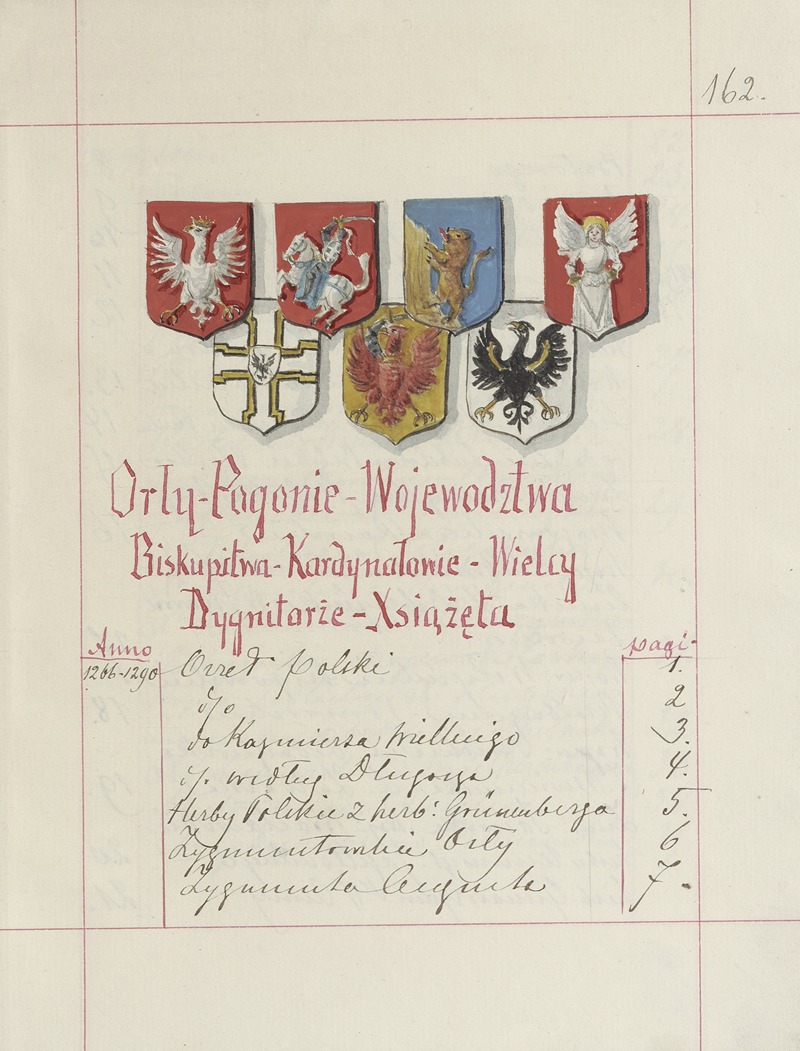 162.
Orły-Pogonie-Województwa
Biskupstwa-Kardynałowie-Wielcy
Dygnitarże-Xsiążęta
Anno pagi-
1266-1290 Orzeł polski 1.
d/o 2
do Kazimierza Wielkiego 3.
według Długosza 4.
Herby Polskie z herb: Grünenberga 5.
Zygmuntowskie Orły 6
Zygmunta Augusta 7-